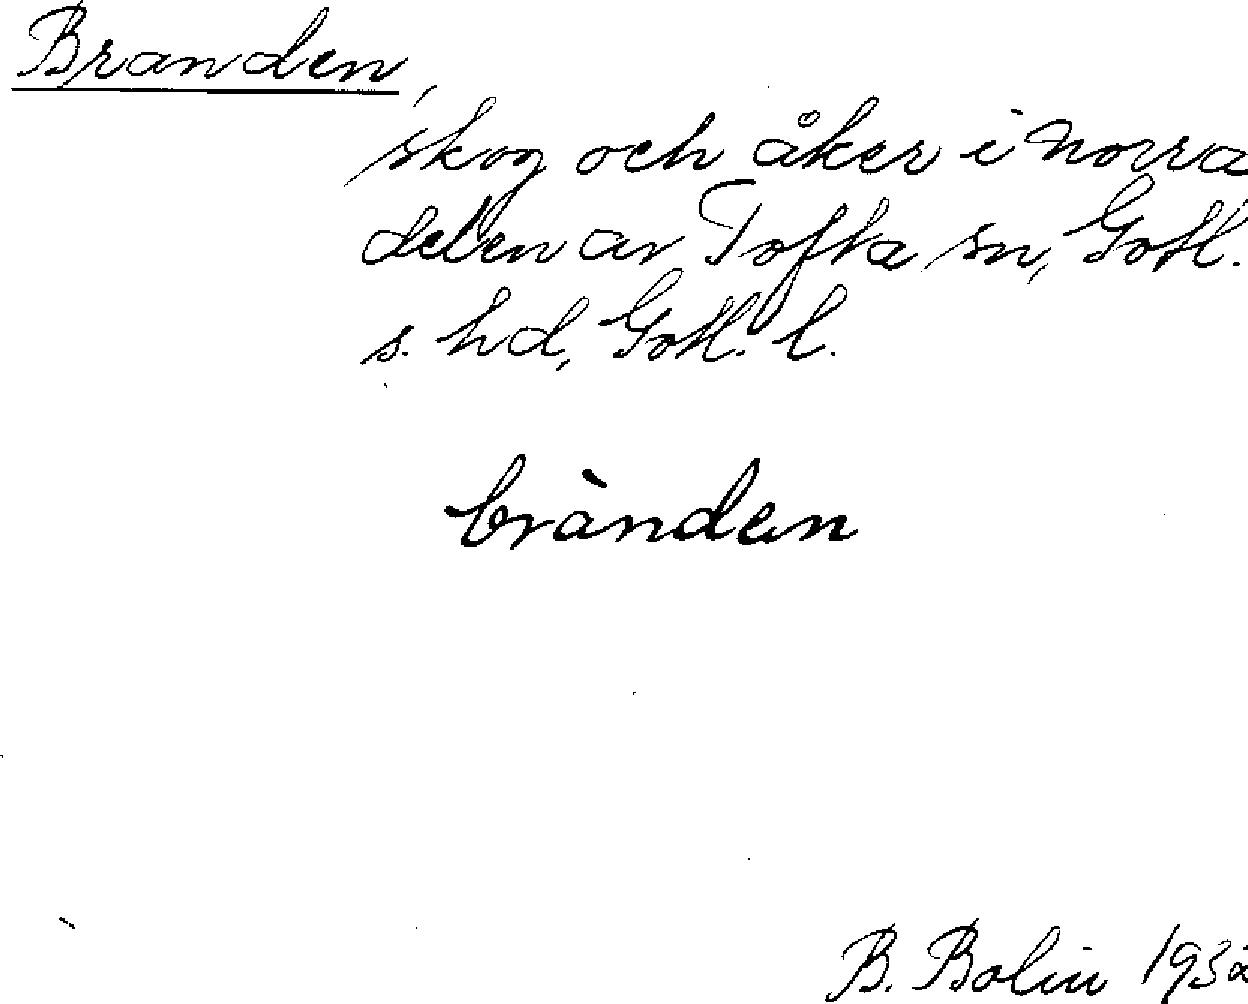 Branden,
skog och åker i norra
delen av Tofta sn, Gotl.
s. hd, Gotl. l.
brànden
B. Bolin 1932